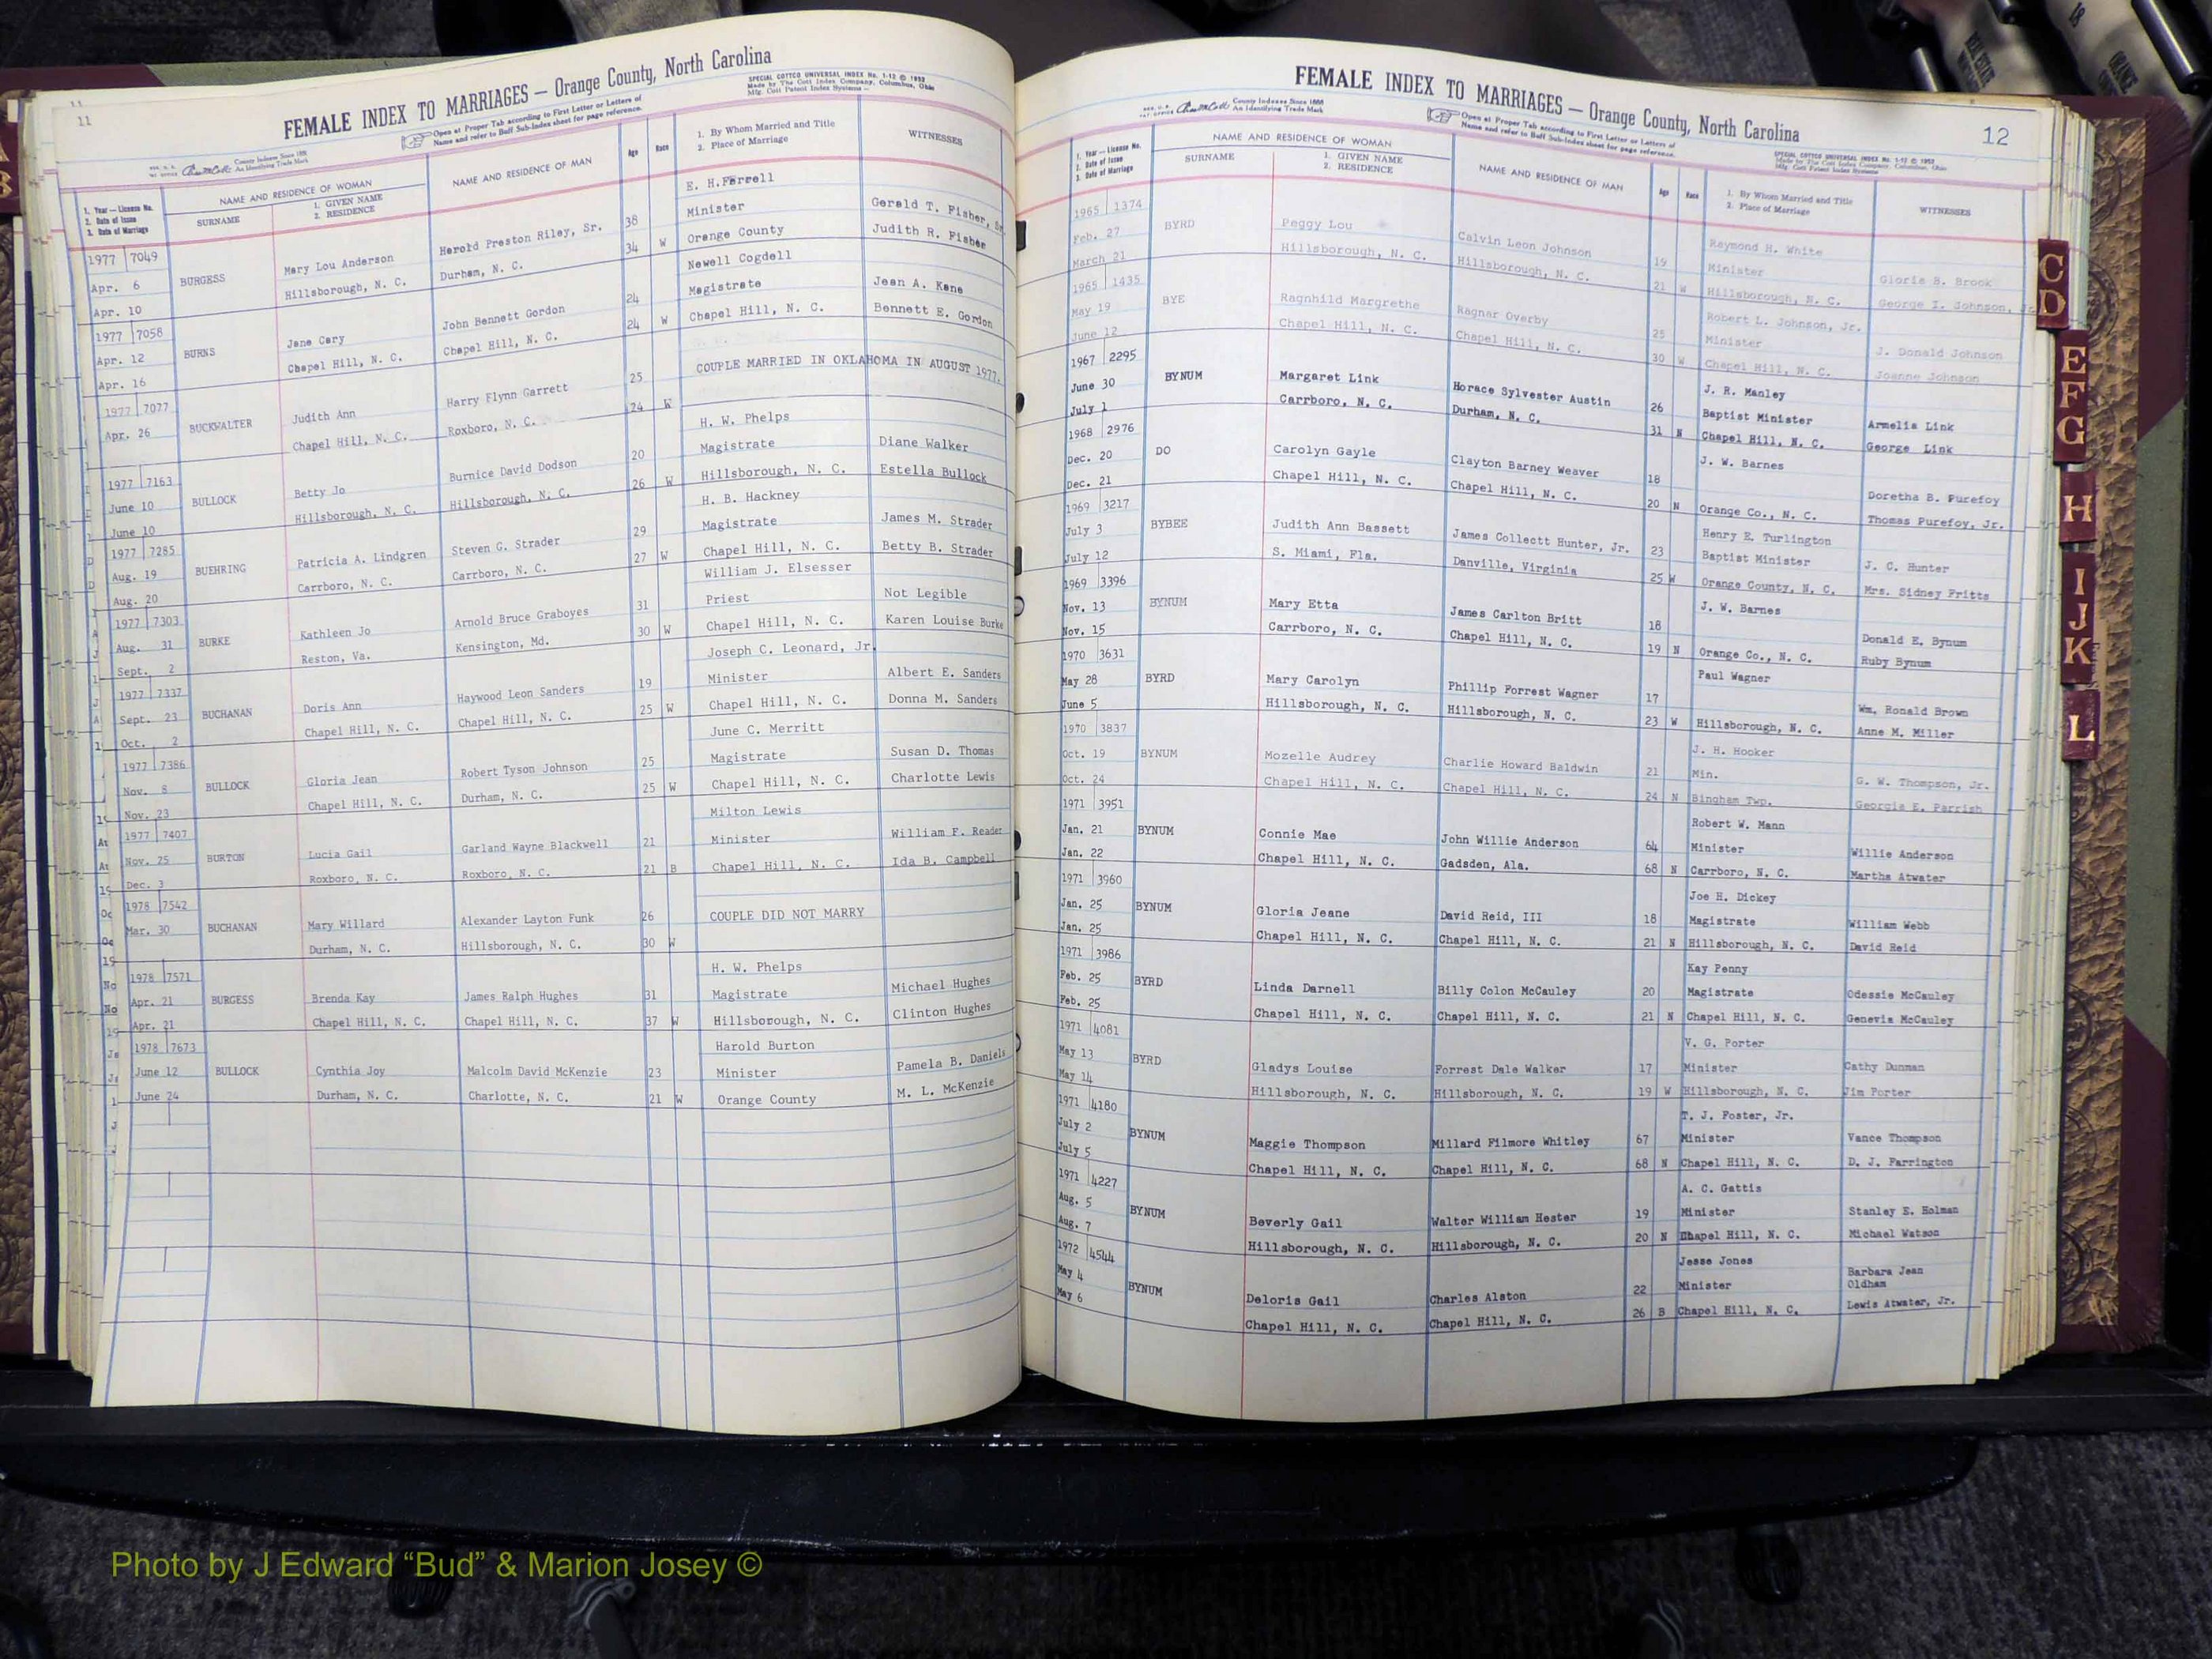 11
FEMALE INDEX TO MARRIAGES — Orange County, North Carolina
Open at Proper Tab according to First Letter or Letters of
Name and refer to Buff Sub-Index sheet for page reference.
SPECIAL COTTCO UNIVERSAL INDEX No. 1-12 © 1952
Made by The Cott Index Company, Columbus, Ohio
Mfg. Cott Patent Index Systems
County Indexes Since 1888
An Identifying Trade Mark
1. Year — License No.
2. Date of Issue
3. Date of Marriage
NAME AND RESIDENCE OF WOMAN
SURNAME
1. GIVEN NAME
2. RESIDENCE
NAME AND RESIDENCE OF MAN
Age
Race
1. By Whom Married and Title
2. Place of Marriage
WITNESSES
1977 7049 E. H. Farrell
Apr. 6 BURGESS Mary Lou Anderson Herold Preston Riley, Sr. 38 Minister Gerald T. Fisher, Sr.
Apr. 10 Hillsborough, N. C. Durham, N. C. 34 W Orange County Judith R. Fisher
1977 7058 Newell Cogdell
Apr. 12 BURNS Jane Cary John Bennett Gordon 24 Magistrate Jean A. Kane
Apr. 16 Chapel Hill, N. C. Chapel Hill, N. C. 24 W Chapel Hill, N. C. Bennett E. Gordon
1977 7077
Apr. 26 BUCKWALTER Judith Ann Harry Flynn Garrett 25 COUPLE MARRIED IN OKLAHOMA IN AUGUST 1977.
Chapel Hill, N. C. Roxboro, N. C. 24 W
1977 7163 H. W. Phelps
June 10 BULLOCK Betty Jo Burnice David Dodson 20 Magistrate Diane Walker
June 10 Hillsborough, N. C. Hillsborough, N. C. 26 W Hillsborough, N. C. Estella Bullock
1977 7285 H. B. Hackney
Aug. 19 BUEHRING Patricia A. Lindgren Steven G. Strader 29 Magistrate James M. Strader
Aug. 20 Carrboro, N. C. Carrboro, N. C. 27 W Chapel Hill, N. C. Betty B. Strader
1977 7303 William J. Elsesser
Aug. 31 BURKE Kathleen Jo Arnold Bruce Graboyes 31 Priest Not Legible
Sept. 2 Reston, Va. Kensington, Md. 30 W Chapel Hill, N. C. Karen Louise Burke
1977 7337 Joseph C. Leonard, Jr.
Sept. 23 BUCHANAN Doris Ann Haywood Leon Sanders 19 Minister Albert E. Sanders
Oct. 2 Chapel Hill, N. C. Chapel Hill, N. C. 25 W Chapel Hill, N. C. Donna M. Sanders
1977 7386 June C. Merritt
Nov. 8 BULLOCK Gloria Jean Robert Tyson Johnson 25 Magistrate Susan D. Thomas
Nov. 23 Chapel Hill, N. C. Durham, N. C. 25 W Chapel Hill, N. C. Charlotte Lewis
1977 7407 Milton Lewis
Nov. 25 BURTON Lucia Gail Garland Wayne Blackwell 21 Minister William F. Reader
Dec. 3 Roxboro, N. C. Roxboro, N. C. 21 B Chapel Hill, N. C. Ida B. Campbell
1978 7542
Mar. 30 BUCHANAN Mary Willard Alexander Layton Funk 26 COUPLE DID NOT MARRY
Durham, N. C. Hillsborough, N. C. 30 W
1978 7571 H. W. Phelps
Apr. 21 BURGESS Brenda Kay James Ralph Hughes 31 Magistrate Michael Hughes
Apr. 21 Chapel Hill, N. C. Chapel Hill, N. C. 37 W Hillsborough, N. C. Clinton Hughes
1978 7673 Harold Burton
June 12 BULLOCK Cynthia Joy Malcolm David McKenzie 23 Minister Pamela B. Daniels
June 24 Durham, N. C. Charlotte, N. C. 21 W Orange County M. L. McKenzie
12
FEMALE INDEX TO MARRIAGES — Orange County, North Carolina
County Indexes Since 1888
An Identifying Trade Mark
Open at Proper Tab according to First Letter or Letters of
Name and refer to Buff Sub-Index sheet for page reference.
SPECIAL COTTCO UNIVERSAL INDEX No. 1-12 © 1952
Made by The Cott Index Company, Columbus, Ohio
Mfg. Cott Patent Index Systems
1. Year — License No.
2. Date of Issue
3. Date of Marriage
NAME AND RESIDENCE OF WOMAN
SURNAME
1. GIVEN NAME
2. RESIDENCE
NAME AND RESIDENCE OF MAN
Age
Race
1. By Whom Married and Title
2. Place of Marriage
WITNESSES
1965 1374 Raymond H. White
Feb. 27 BYRD Peggy Lou Calvin Leon Johnson 19 Minister Gloria B. Brook
March 21 Hillsborough, N. C. Hillsborough, N. C. 21 W Hillsborough, N. C. George I. Johnson, Jr.
1965 1435 Robert L. Johnson, Jr.
May 19 BYE Ragnhild Margrethe Ragnar Overby 25 Minister J. Donald Johnson
June 12 Chapel Hill, N. C. Chapel Hill, N. C. 30 W Chapel Hill, N. C. Joanne Johnson
1967 2295 J. R. Manley
June 30 BYNUM Margaret Link Horace Sylvester Austin 26 Baptist Minister Armelia Link
July 1 Carrboro, N. C. Durham, N. C. 31 N Chapel Hill, N. C. George Link
1968 2976 J. W. Barnes
Dec. 20 DO Carolyn Gayle Clayton Barney Weaver 18 Doretha B. Purefoy
Dec. 21 Chapel Hill, N. C. Chapel Hill, N. C. 20 N Orange Co., N. C. Thomas Purefoy, Jr.
1969 3217 Henry E. Turlington
July 3 BYBEE Judith Ann Bassett James Collectt Hunter, Jr. 23 Baptist Minister J. C. Hunter
July 12 S. Miami, Fla. Danville, Virginia 25 W Orange County, N. C. Mrs. Sidney Fritts
1969 3396 J. W. Barnes
Nov. 13 BYNUM Mary Etta James Carlton Britt 18 Donald E. Bynum
Nov. 15 Carrboro, N. C. Chapel Hill, N. C. 19 N Orange Co., N. C. Ruby Bynum
1970 3631 Paul Wagner
May 28 BYRD Mary Carolyn Phillip Forrest Wagner 17 Wm. Ronald Brown
June 5 Hillsborough, N. C. Hillsborough, N. C. 23 W Hillsborough, N. C. Anne M. Miller
1970 3837 J. H. Hooker
Oct. 19 BYNUM Mozelle Audrey Charlie Howard Baldwin 21 Min. G. W. Thompson, Jr.
Oct. 24 Chapel Hill, N. C. Chapel Hill, N. C. 24 N Bingham Twp. Georgia E. Parrish
1971 3951 Robert W. Mann
Jan. 21 BYNUM Connie Mae John Willie Anderson 64 Minister Willie Anderson
Jan. 22 Chapel Hill, N. C. Gadsden, Ala. 68 N Carrboro, N. C. Martha Atwater
1971 3960 Joe H. Dickey
Jan. 25 BYNUM Gloria Jeane David Reid, III 18 Magistrate William Webb
Jan. 25 Chapel Hill, N. C. Chapel Hill, N. C. 21 N Hillsborough, N. C. David Reid
1971 3986 Kay Penny
Feb. 25 BYRD Linda Darnell Billy Colon McCauley 20 Magistrate Odessie McCauley
Feb. 25 Chapel Hill, N. C. Chapel Hill, N. C. 21 N Chapel Hill, N. C. Genevia McCauley
1971 4081 V. G. Porter
May 13 BYRD Gladys Louise Forrest Dale Walker 17 Minister Cathy Dunman
May 14 Hillsborough, N. C. Hillsborough, N. C. 19 W Hillsborough, N. C. Jim Porter
1971 4180 T. J. Foster, Jr.
July 2 BYNUM Maggie Thompson Millard Filmore Whitley 67 Minister Vance Thompson
July 5 Chapel Hill, N. C. Chapel Hill, N. C. 68 N Chapel Hill, N. C. D. J. Farrington
1971 4227 A. C. Gattis
Aug. 5 BYNUM Beverly Gail Walter William Hester 19 Minister Stanley E. Holman
Aug. 7 Hillsborough, N. C. Hillsborough, N. C. 20 N Chapel Hill, N. C. Michael Watson
1972 4544 Jesse Jones
May 4 BYNUM Deloris Gail Charles Alston 22 Minister Barbara Jean Oldham
May 6 Chapel Hill, N. C. Chapel Hill, N. C. 26 B Chapel Hill, N. C. Lewis Atwater, Jr.
C
D
E
F
G
H
I
J
K
L
Photo by J Edward “Bud” & Marion Josey ©